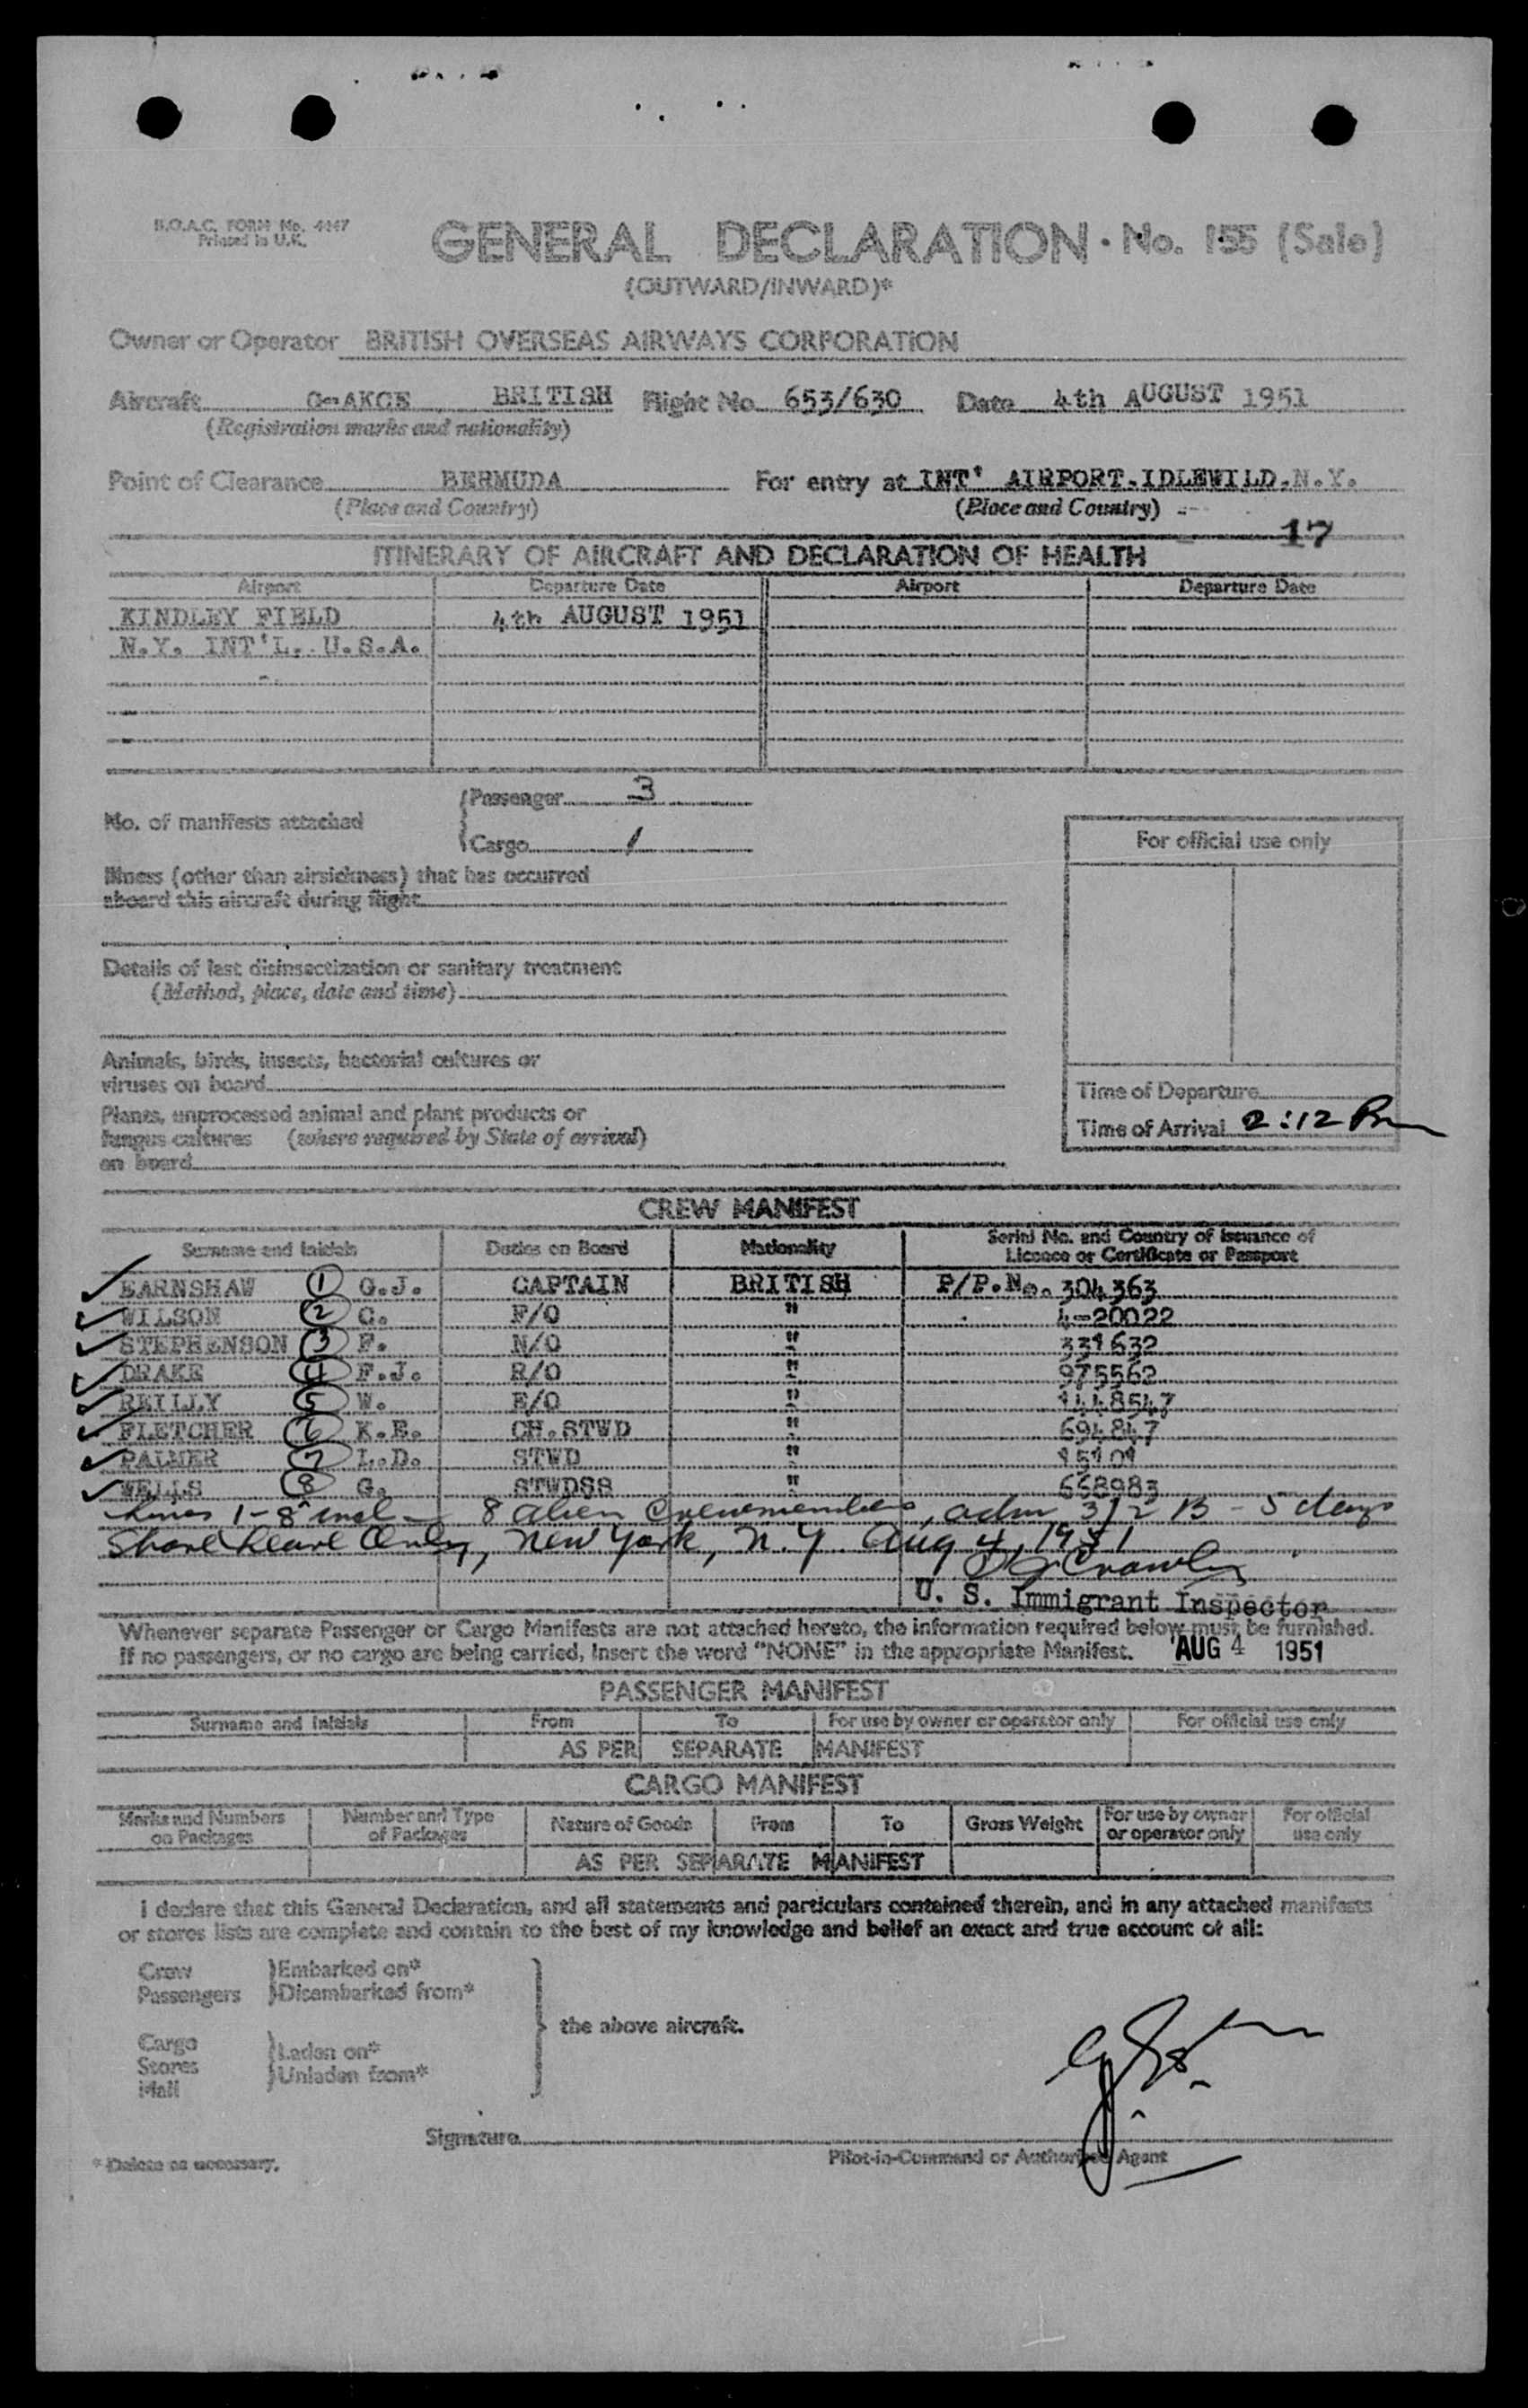 B.O.A.C. FORM No. 4447
Printed in U.K.
GENERAL DECLARATION · No. 155 (Sale)
(OUTWARD/INWARD)*
Owner or Operator BRITISH OVERSEAS AIRWAYS CORPORATION
Aircraft G-AKCE BRITISH Flight No. 653/630 Date 4th AUGUST 1951
(Registration marks and nationality)
Point of Clearance BERMUDA For entry at INT' AIRPORT. IDLEWILD. N.Y.
(Place and Country) (Place and Country)
17
ITINERARY OF AIRCRAFT AND DECLARATION OF HEALTH
Airport Departure Date Airport Departure Date
KINDLEY FIELD 4th AUGUST 1951
N.Y. INT'L. U.S.A.
No. of manifests attached { Passenger 3
Cargo 1
Illness (other than airsickness) that has occurred
aboard this aircraft during flight
Details of last disinsectization or sanitary treatment
(Method, place, date and time)
Animals, birds, insects, bacterial cultures or
viruses on board
Plants, unprocessed animal and plant products or
fungus cultures (where required by State of arrival)
on board
For official use only
Time of Departure
Time of Arrival 2:12 Pm
CREW MANIFEST
Surname and Initials Duties on Board Nationality Serial No. and Country of Issuance of Licence or Certificate or Passport
EARNSHAW 1 G.J. CAPTAIN BRITISH P/P.No. 304363
WILSON 2 G. F/O " 4-20022
STEPHENSON 3 F. N/O " 331632
DRAKE 4 F.J. R/O " 975562
REILLY 5 W. E/O " 1448547
FLETCHER 6 K.E. CH.STWD " 694847
PALMER 7 L.D. STWD " 15101
WELLS 8 G. STWDSS " 668983
Lines 1-8 incl - 8 alien Crewmembers, adm 3/2 B - 5 days
Shore Leave Only, New York, N.Y. Aug 4, 1951
U. S. Immigrant Inspector
Whenever separate Passenger or Cargo Manifests are not attached hereto, the information required below must be furnished.
If no passengers, or no cargo are being carried, insert the word "NONE" in the appropriate Manifest.
AUG 4 1951
PASSENGER MANIFEST
Surname and Initials From To For use by owner or operator only For official use only
AS PER SEPARATE MANIFEST
CARGO MANIFEST
Marks and Numbers on Packages Number and Type of Packages Nature of Goods From To Gross Weight For use by owner or operator only For official use only
AS PER SEPARATE MANIFEST
I declare that this General Declaration, and all statements and particulars contained therein, and in any attached manifests
or stores lists are complete and contain to the best of my knowledge and belief an exact and true account of all:
Crew } Embarked on*
Passengers } Disembarked from*
the above aircraft.
Cargo
Stores } Laden on*
Mail } Unladen from*
Signature
Pilot-in-Command or Authorised Agent
* Delete as necessary.